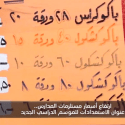 باكوكراس ٢٨ ورقة ٢٠
باكو كشكول ٤٠ ورقة
باكو كشكول ٦٠ ورقة
باكو كشكول ٨٠ ورقة
ارتفاع أسعار مستلزمات المدارس..
عنوان الاستعدادات للموسم الدراسي الجديد